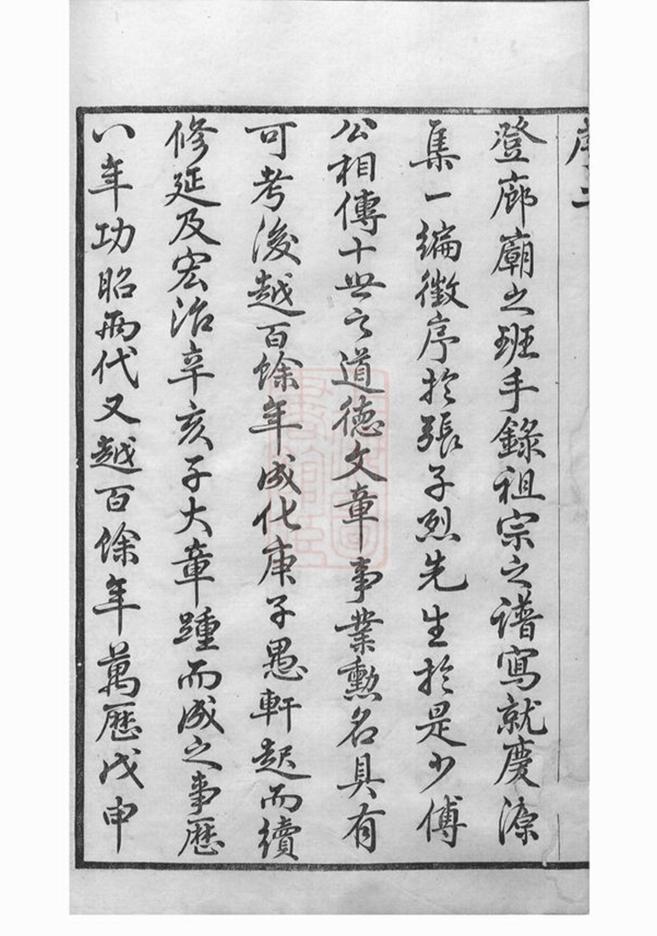 序二
登廊廟之班手錄祖宗之譜寫就慶源
集一編徵序於張子烈先生於是少傅
公相傳十世之道德文章事業勳名具有
可考後越百餘年成化庚子愚軒起而續
修延及宏治辛亥子大章踵而成之事歷
八年功昭兩代又越百餘年萬歷戊申